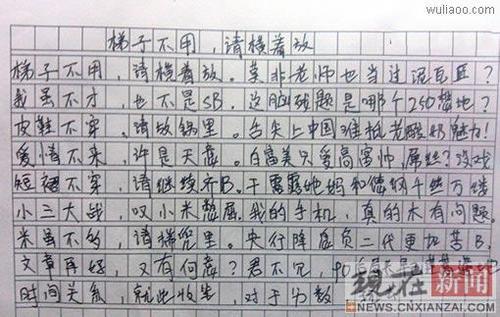 www.wuliaoo.com
梯子不用,请横着放
梯子不用,请横着放。莫非老师也当过泥瓦匠?
我虽不才,也不是SB。这脑残题是哪个250想地?
皮鞋不穿,请放锅里。舌尖上中国难抵老酸奶魅力!
爱情不来,许是天意。白富美只爱高富帅,屌丝?没戏
短裙不穿,请继续齐B。干露露她妈和 千丝万缕
小三大战,叹小米憋屈。我的手机,真的木有问题.
米虽不多,请 兜里。央行降息负二代更加苦B.
文章再好,又有何意?君不见,90后
时间关系,就此收笔,对于分数
现在新闻
©WWW.CNXIANZAI.COM